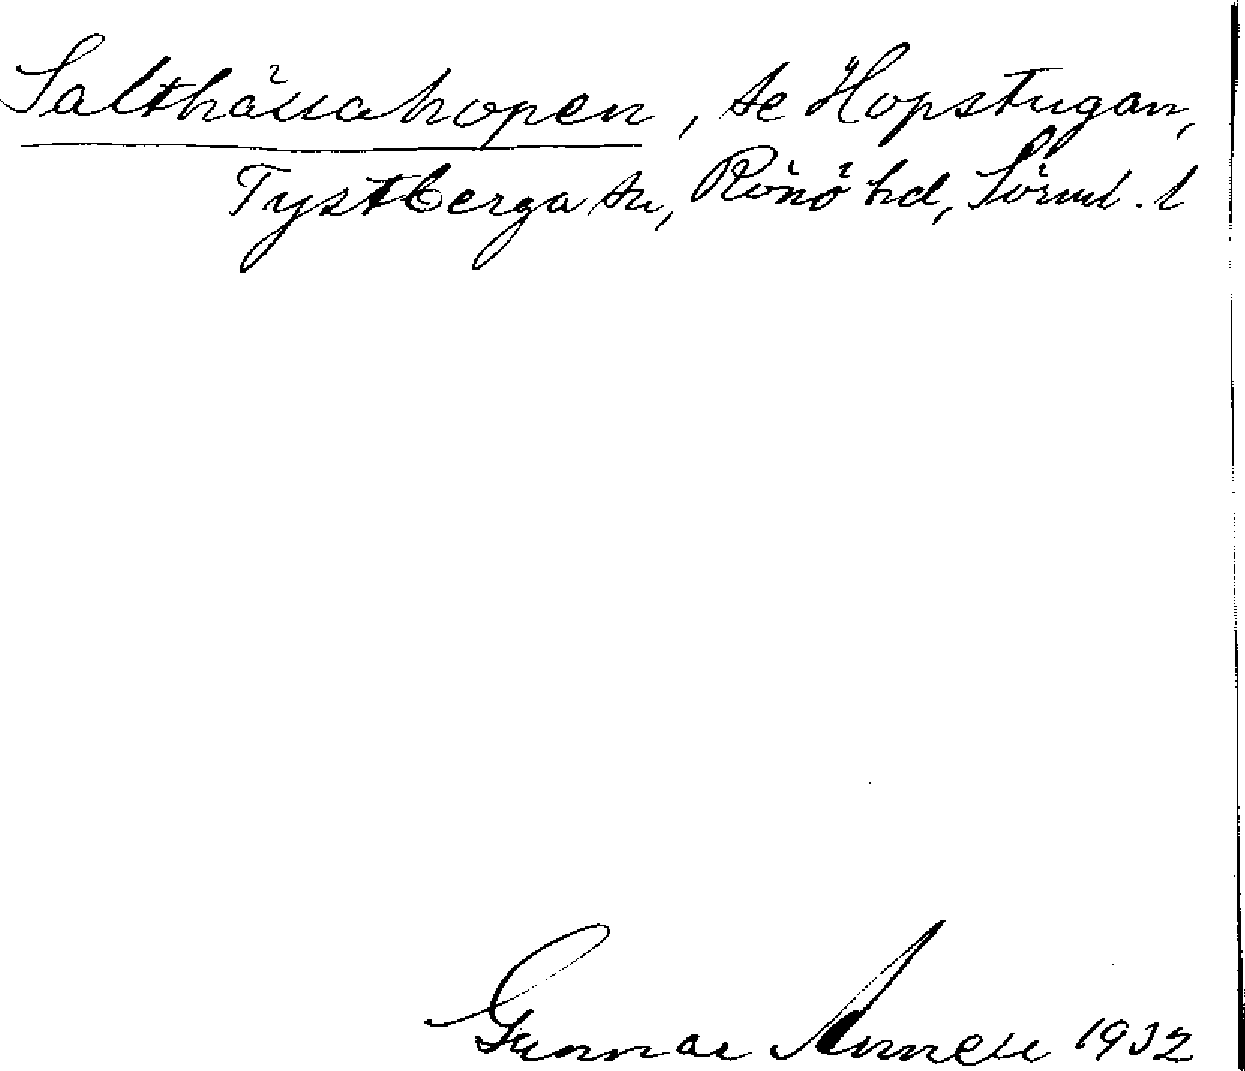 Salthällahopen, se Hopstugan,
Tystberga sn, Rönö hd, Sörml. l
Gunnar Annell 1932